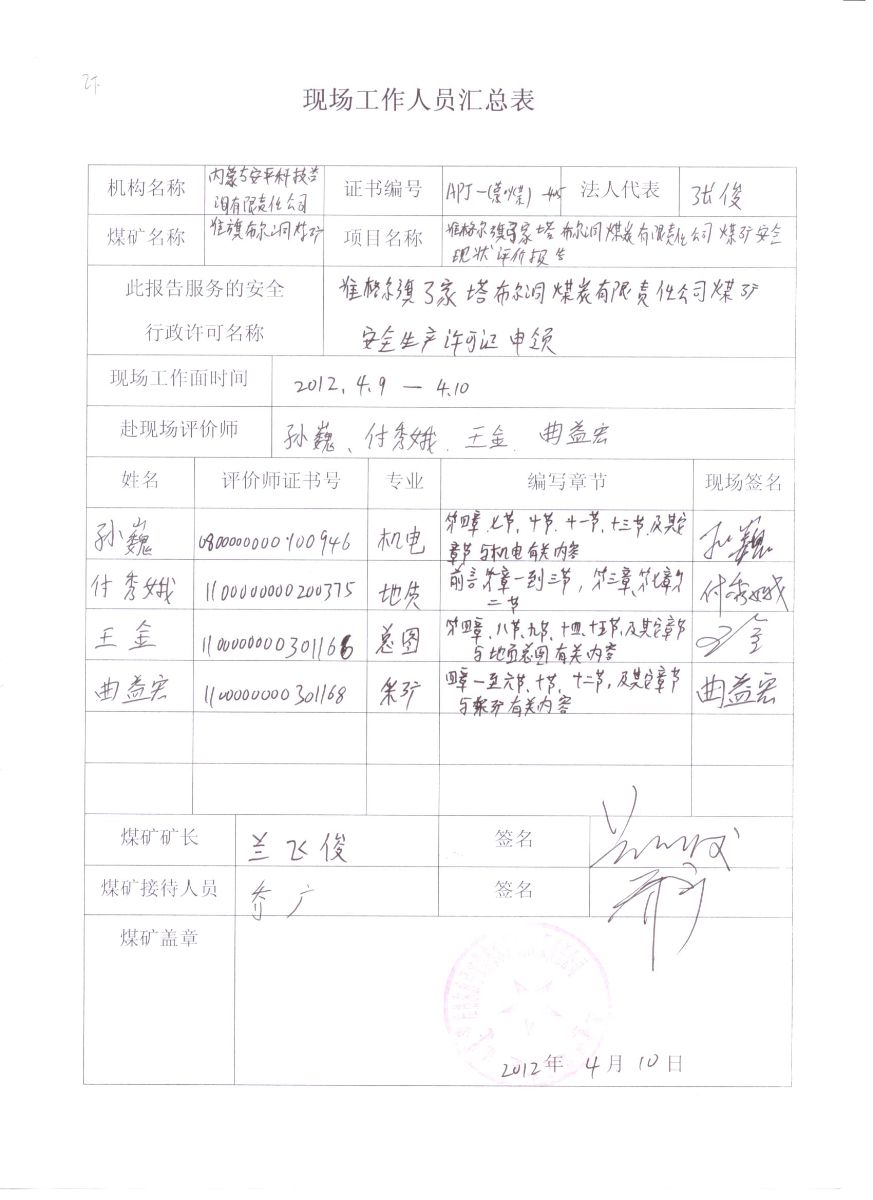 现场工作人员汇总表
机构名称 内蒙古安平科技咨 证书编号 APJ-(蒙煤)-405 法人代表 张俊
询有限责任公司
煤矿名称 准旗布尔洞煤矿 项目名称 准格尔旗丁家塔布尔洞煤炭有限责任公司煤矿安全
现状评价报告
此报告服务的安全 准格尔旗丁家塔布尔洞煤炭有限责任公司煤矿
行政许可名称 安全生产许可证申领
现场工作面时间 2012.4.9 — 4.10
赴现场评价师 孙巍、付秀娥、王金、曲益宏
姓名 评价师证书号 专业 编写章节 现场签名
孙巍 0800000000100946 机电 第四章、七节、十节、十一节、十三节及其它 孙巍
章节与机电有关内容
付秀娥 1100000000200375 地质 前言第章一到三节,第三章、第七章第 付秀娥
二节
王金 1100000000301166 总图 第四章、八节、九节、十四、十五节,及其它章节 王金
与地面总图有关内容
曲益宏 1100000000301168 采矿 四章一至六节、十节、十二节,及其它章节 曲益宏
与采矿有关内容
煤矿矿长 兰飞俊 签名
煤矿接待人员 乔广 签名 乔广
煤矿盖章
2012年 4月10日